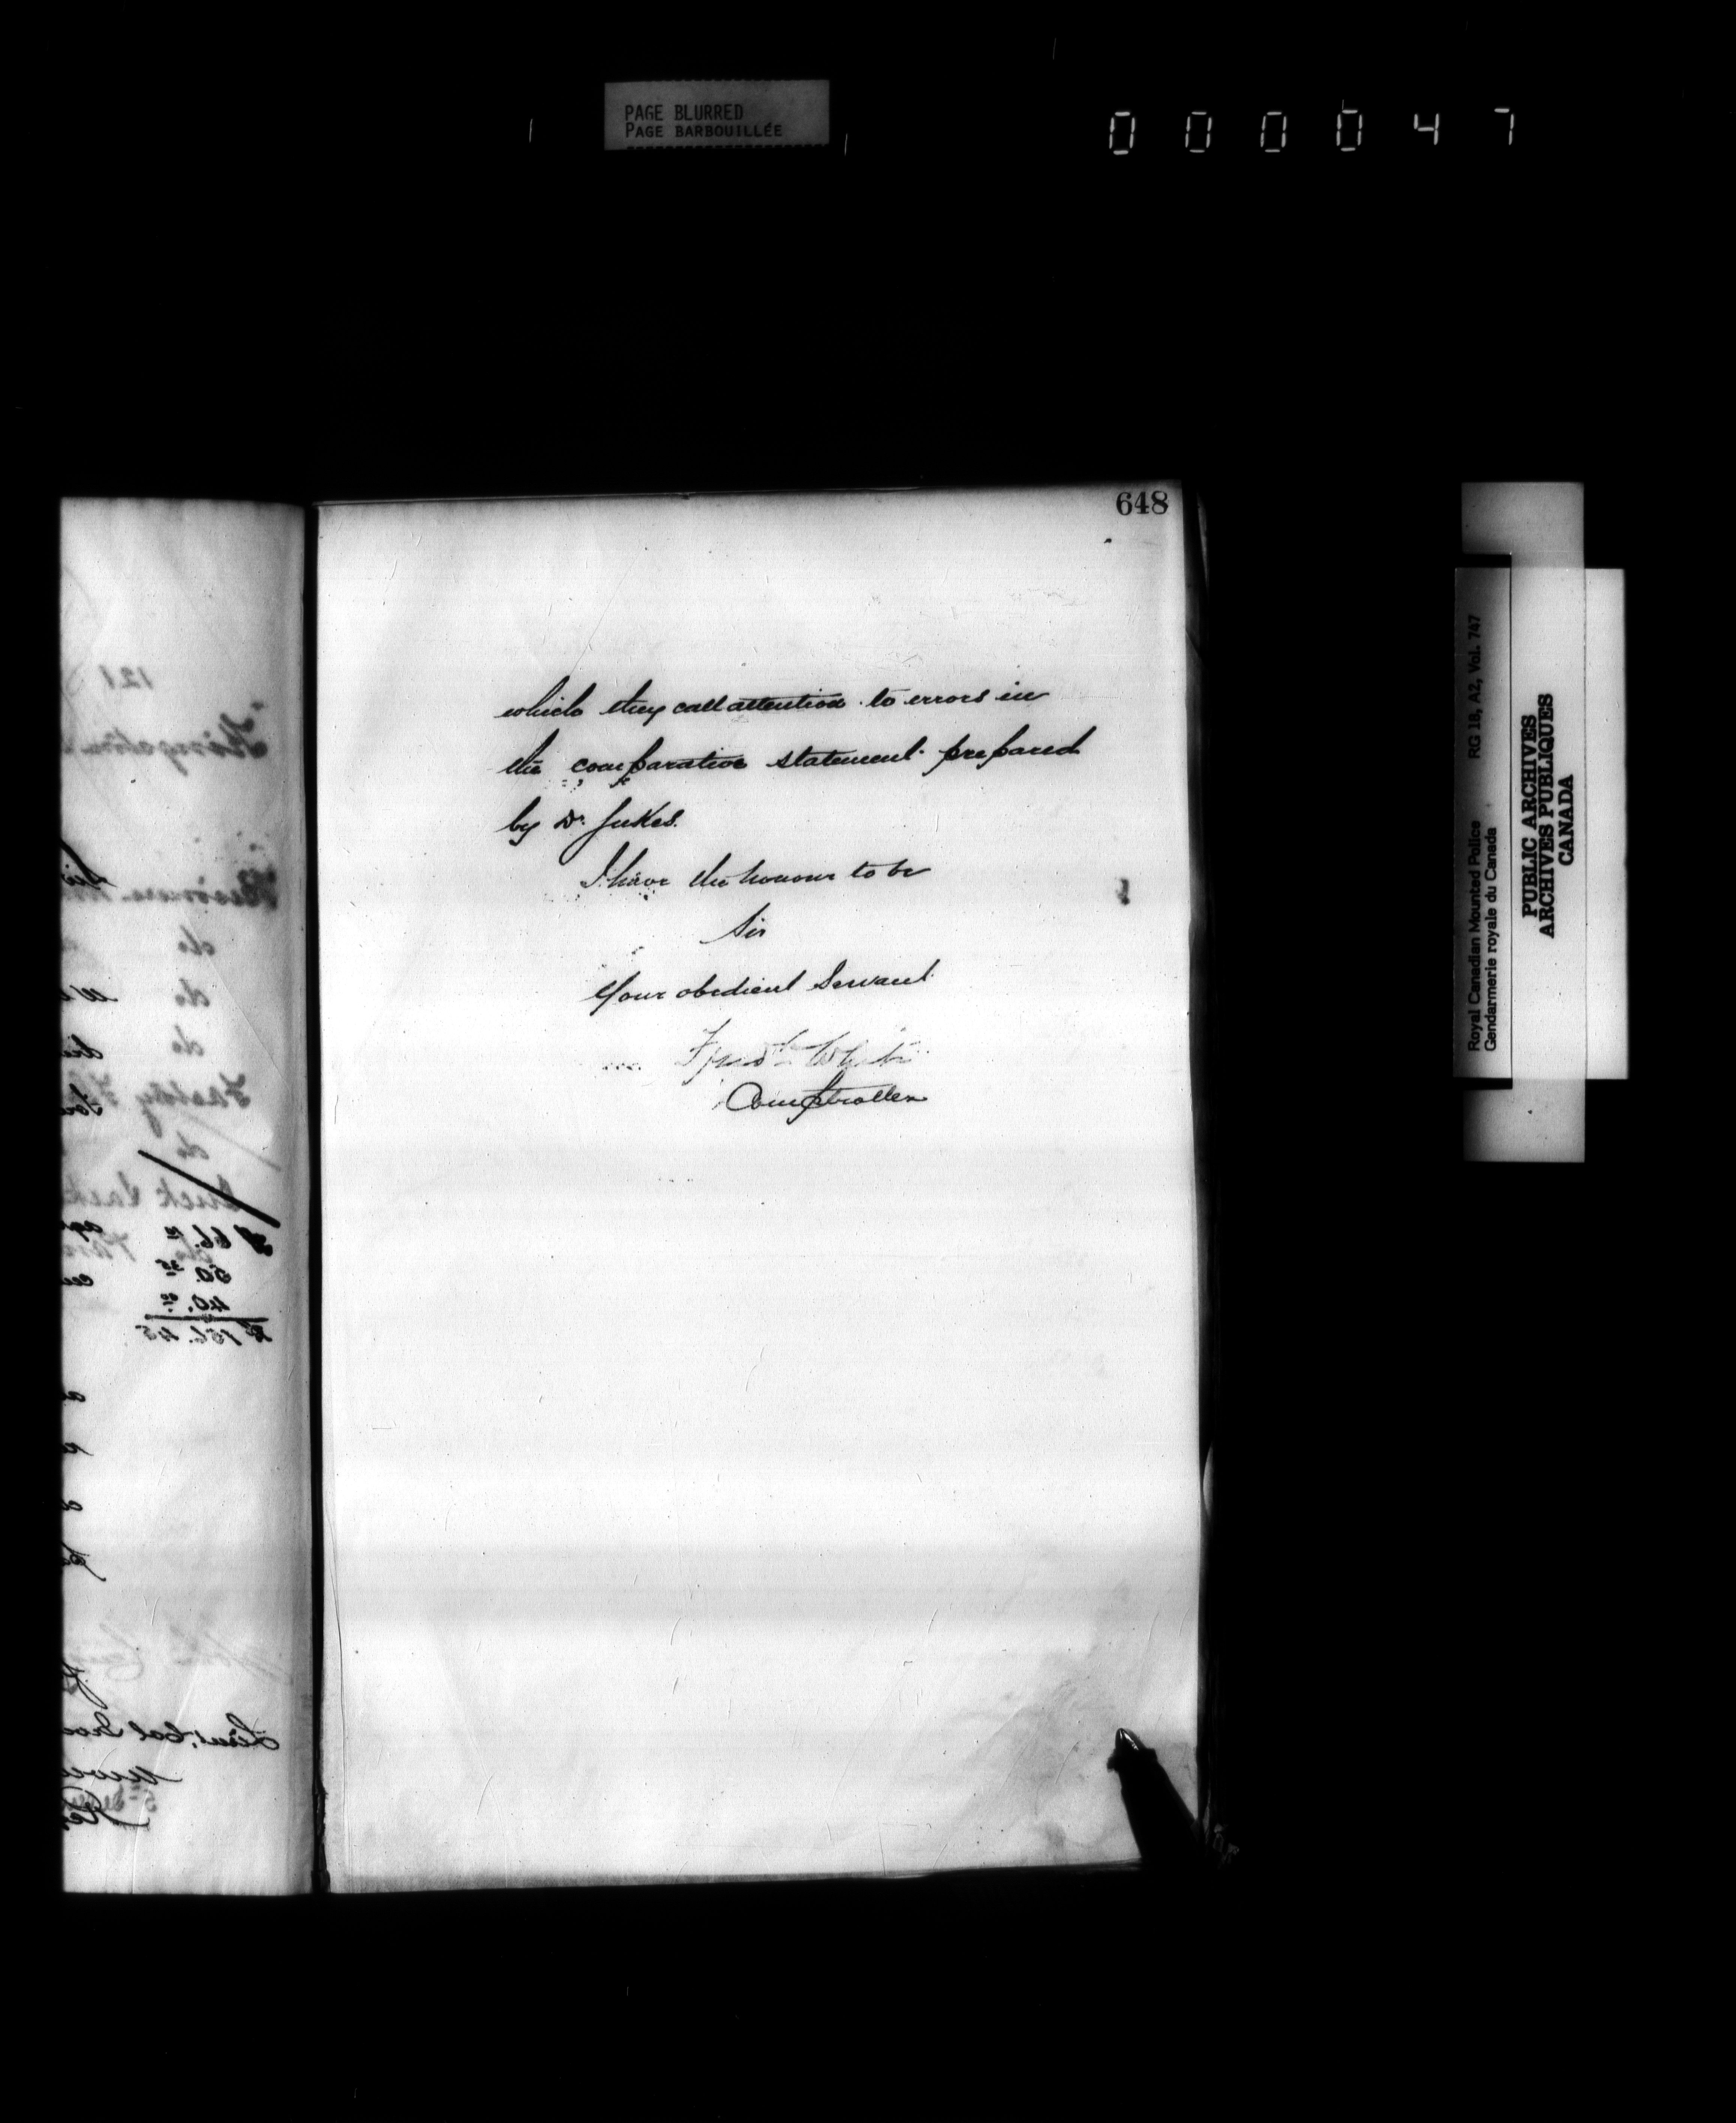 PAGE BLURRED
PAGE BARBOUILLÉE
000047
648
which they call attention to errors in
the comparative statement prepared
by Dr. Jukes.
I have the honour to be
Sir
Your obedient Servant
Fred White
Comptroller
121
do
do
do
do
66.10
50.35
40.00
$156.45
Royal Canadian Mounted Police RG 18, A2, Vol. 747
Gendarmerie royale du Canada
PUBLIC ARCHIVES
ARCHIVES PUBLIQUES
CANADA